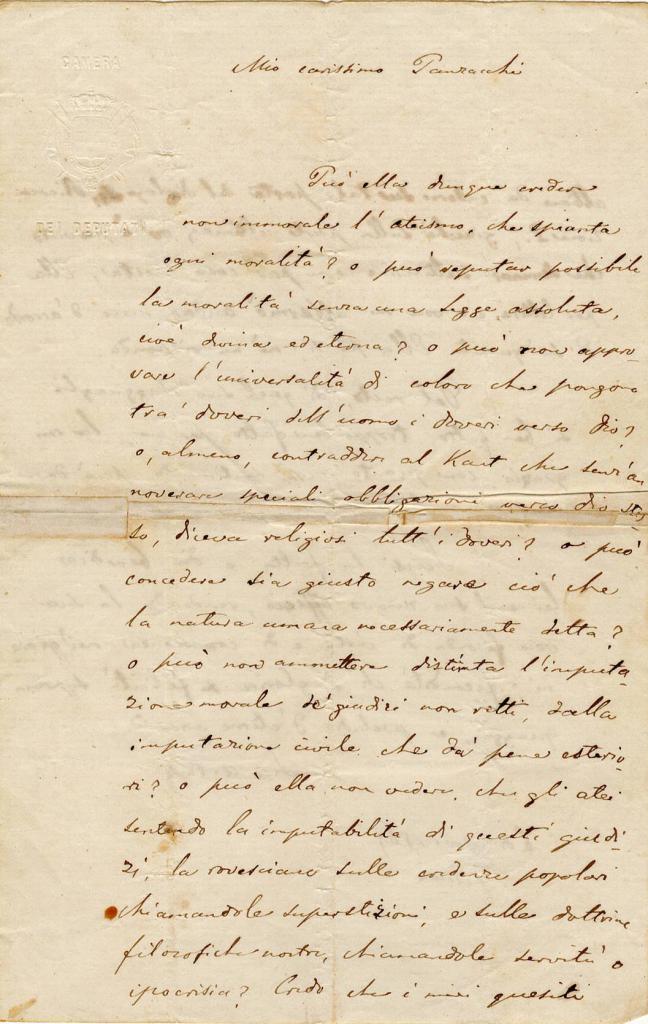 CAMERA
DEI DEPUTATI
Mio carissimo Panzacchi
Può ella dunque credere
non immorale l'ateismo, che spianta
ogni moralità? o può reputar possibile
la moralità senza una legge assoluta,
cioè divina ed eterna? o può non appro-
vare l'universalità di coloro che pongono
tra' doveri dell'uomo i doveri verso Dio?
o, almeno, contraddire al Kant che senz'an
noverare speciali obbligazioni verso dio stes
so, diceva religiosi tutt'i doveri? o può
concedere sia giusto negare ciò che
la natura umana necessariamente detta?
o può non ammettere distinta l'imputa-
zione morale de' giudizi non retti, dalla
imputazione civile che dà pene esterio-
ri? o può ella non vedere, che gli atei
sentendo la imputabilità di questi giudi-
zi, la rovesciano sulle credenze popolari
chiamandole superstizioni, e sulle dottrine
filosofiche nostre, chiamandole servitù o
ipocrisia? Credo che i miei quesiti